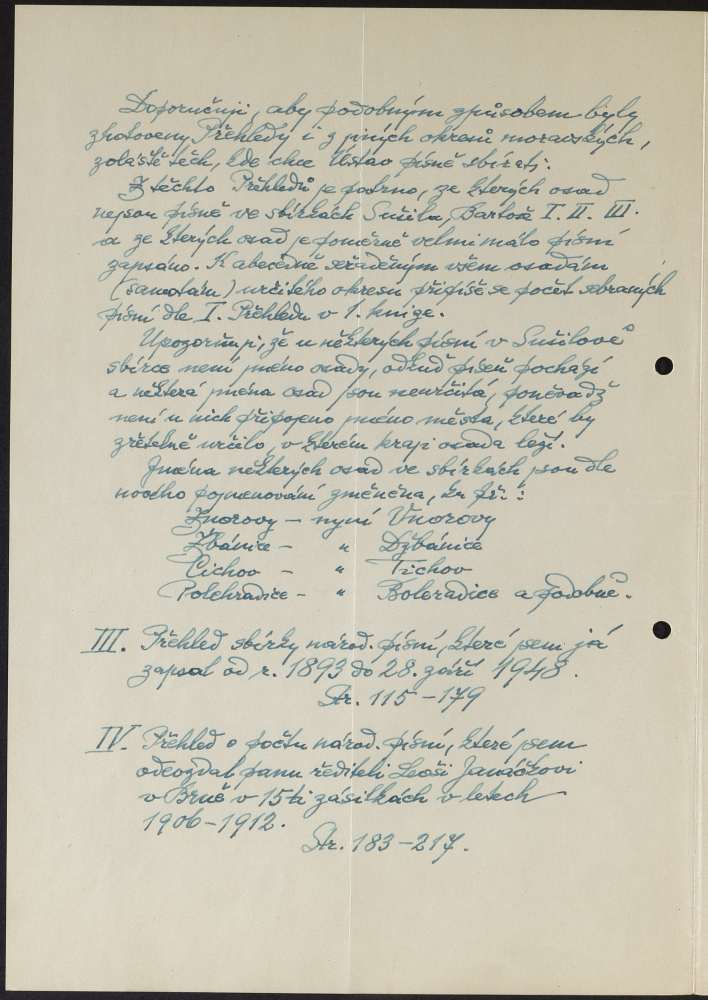 Doporučuji, aby podobným způsobem byly
zhotoveny Přehledy i z jiných okresů moravských,
zvláště těch, kde chce Ústav písně sbírati.
Z těchto Přehledů je patrno, ze kterých osad
nejsou písně ve sbírkách Sušila, Bartoše I. II. III.
a ze kterých osad je poměrně velmi málo písní
zapsáno. K abecedně seřaděným všem osadám
(samotám) určitého okresu připíše se počet sebraných
písní dle I. Přehledu v 1. knize.
Upozorňuji, že u některých písní v Sušilově
sbírce není jméno osady, odkud píseň pochází
a některá jména osad jsou neurčitá, poněvadž
není u nich připojeno jméno města, které by
zřetelně určilo, v kterém kraji osada leží.
Jména některých osad ve sbírkách jsou dle
nového pojmenování změněna, ku př.:
Znorovy – nyní Vnorovy
Zbánice – " Džbánice
Cichov – " Tichov
Polehradice – " Boleradice a podobně.
III. Přehled sbírky národ. písní, které jsem já
zapsal od r. 1893 do 28. září 1948.
Str. 115–179
IV. Přehled o počtu národ. písní, které jsem
odevzdal panu řediteli Leoši Janáčkovi
v Brně v 15ti zásilkách v letech
1906–1912.
Str. 183–217.